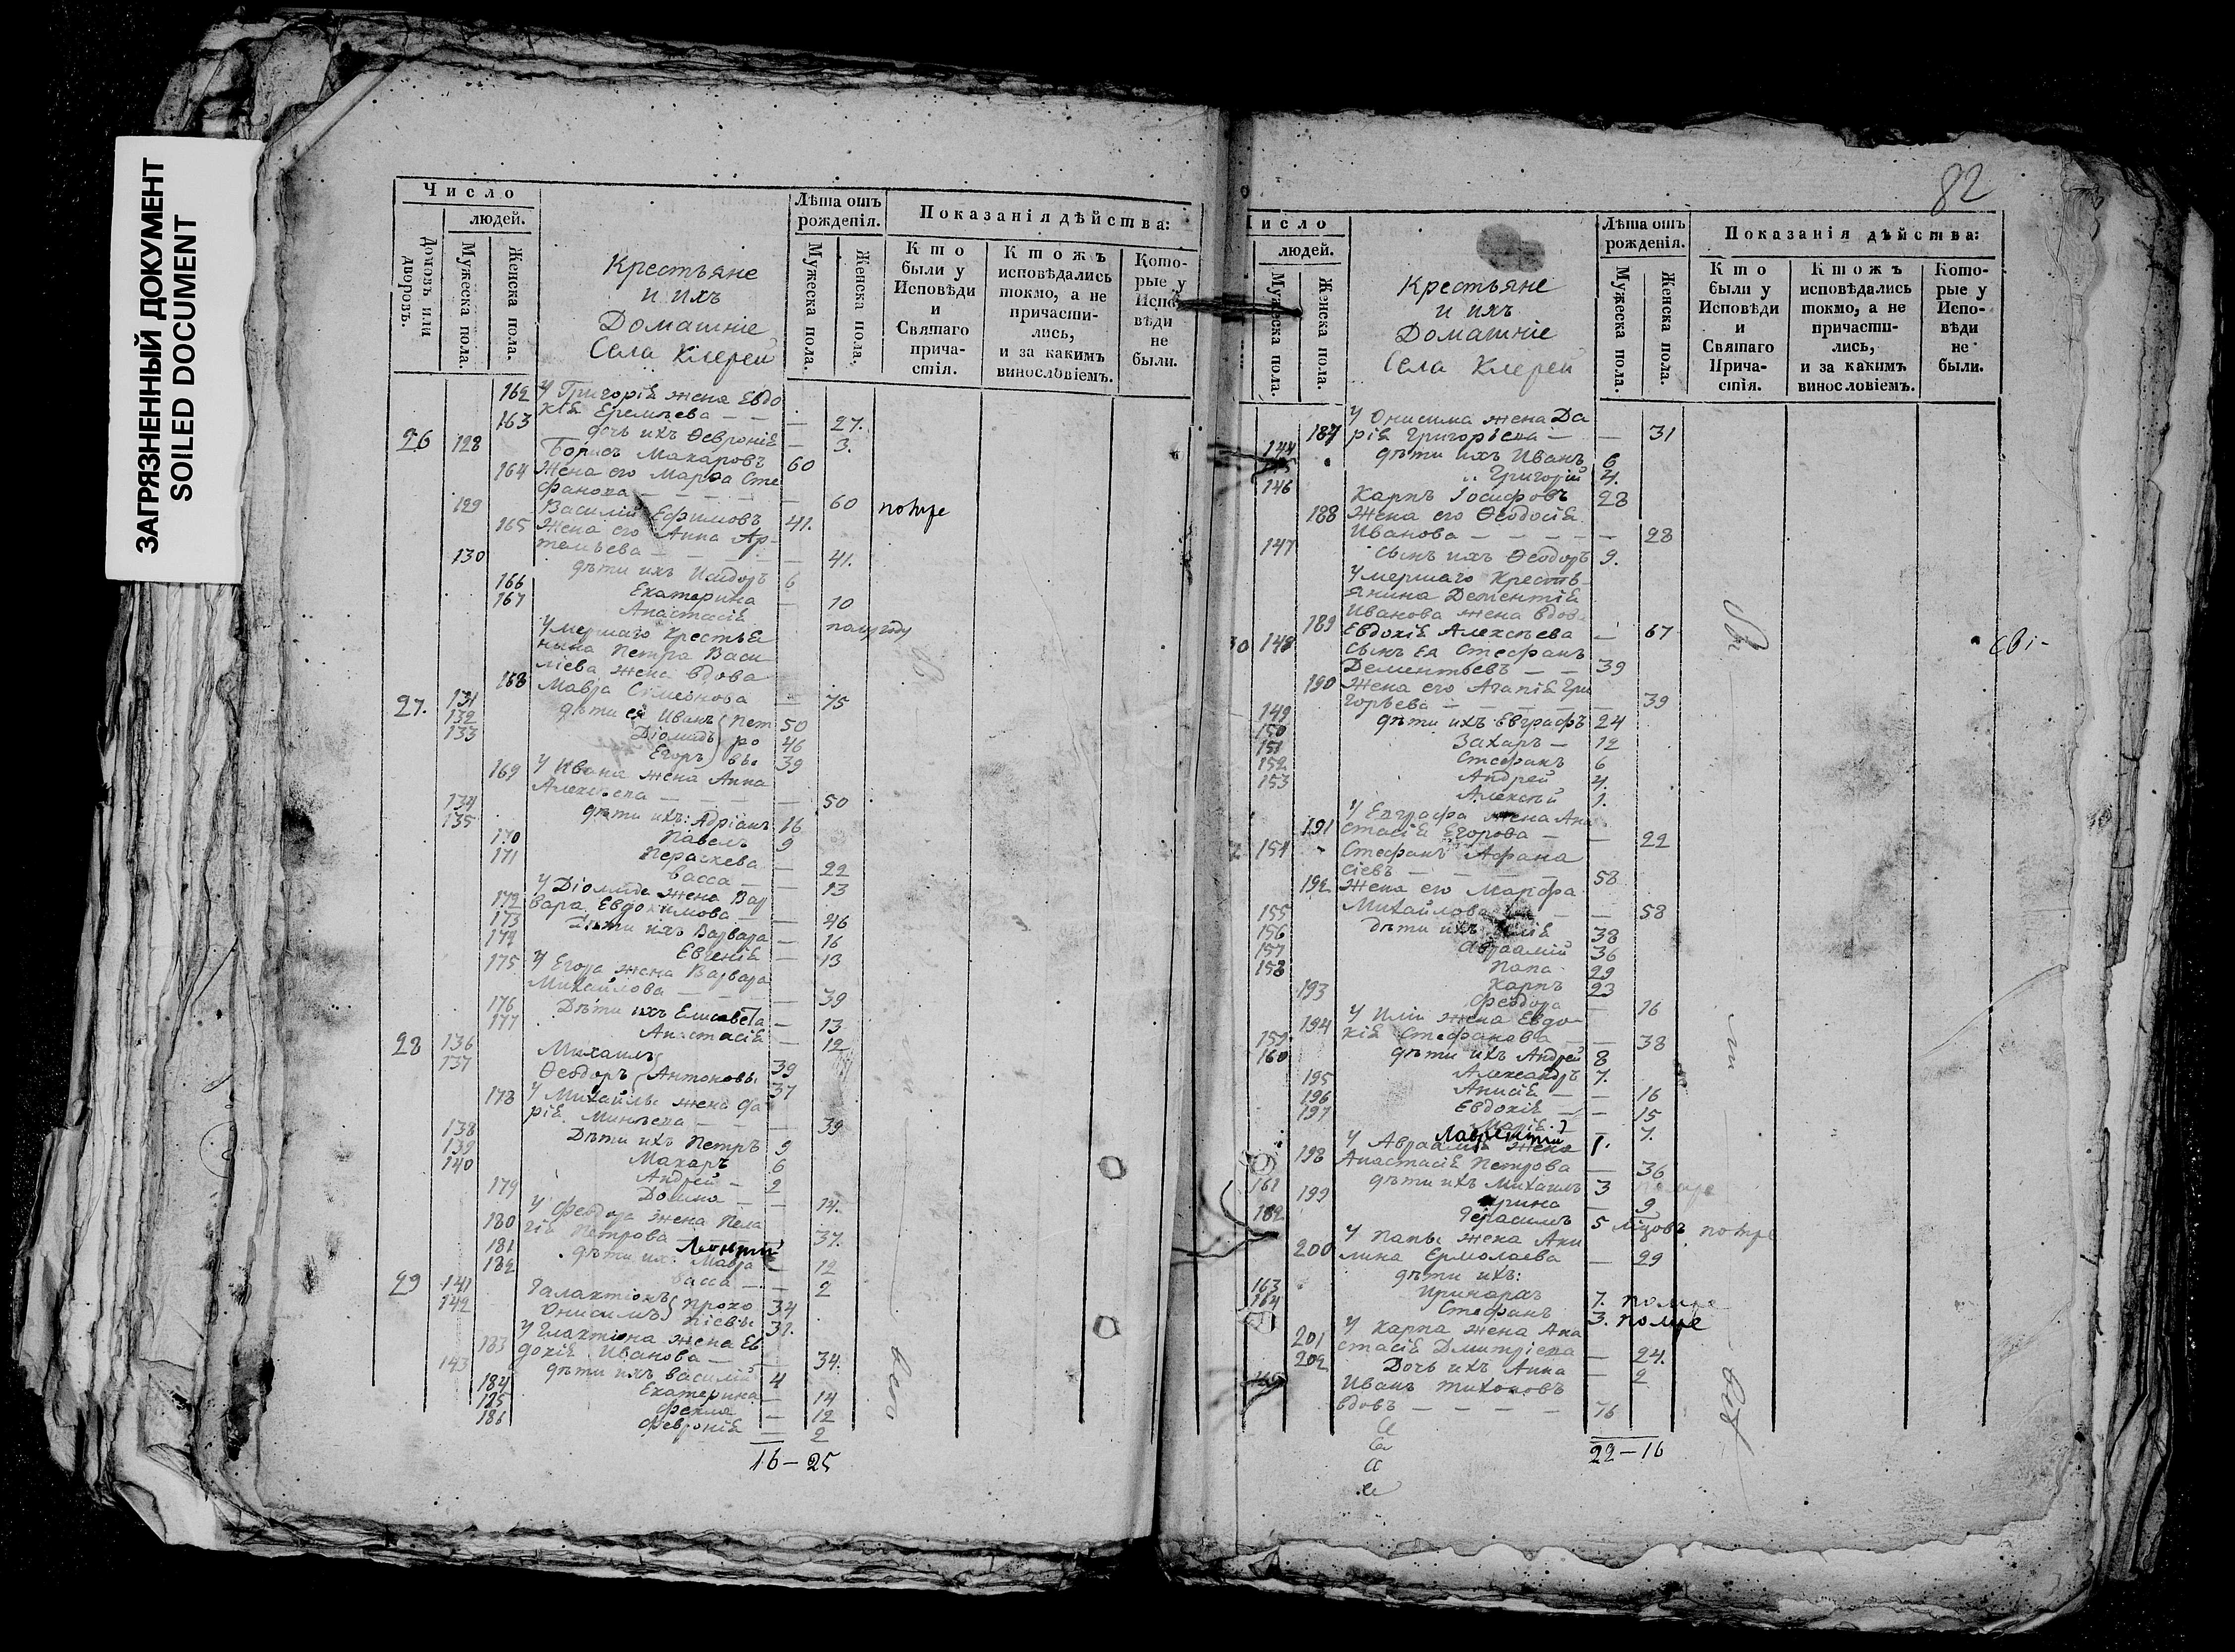 ЗАГРЯЗНЕННЫЙ ДОКУМЕНТ
SOILED DOCUMENT
Число
людей.
Домовъ или дворовъ.
Мужеска пола.
Женска пола.
Крестьяне
и ихъ
Домашніе
Села Клереи
Лѣта отъ рожденія.
Мужеска пола.
Женска пола.
Показанія дѣйства:
Кто были у Исповѣди и Святаго причастія.
Ктожъ исповѣдались токмо, а не причастились, и за какимъ винословіемъ.
Которые у Исповѣди не были.
162 У Григоріѣ жена Евдо
кіѣ Еремѣева — — — 27.
163 дочь ихъ Ѳевроніѣ — 3.
26 128 Борисъ Макаровъ 60
164 Жена его Марѳа Сте
фанова — — — — 60 помре
129 Василій Ефимовъ 41.
165 Жена его Анна Ар-
темьева — — — — 41.
130 дѣти ихъ Исидоръ 6
166 Екатерина — 10
167 Анастасіѣ полугоду
Умершаго Крестьѣ
нина Петра Васи
ліева жена вдова
168 Мавра Симеонова — 75
27. 131 дѣти ея Иванъ Пет 50
132 Діомидъ ро 46
133 Егоръ вы 39
169 У Ивана жена Анна
Алексѣева — — — 50
134 дѣти ихъ: Адріанъ 16
135 Павелъ 9
170 Параскева — 22
171 Васса — — 13
У Діомида жена Вар
172 вара Евдокимова — — 46
173 Дѣти ихъ Варвара — 16
174 Евгеніѣ — 13
175 У Егора жена Варвара
Михайлова — — — 39
176 Дѣти ихъ Елисавета — 13
177 Анастасіѣ — 12
28 136 Михаилъ 39
137 Ѳеодоръ Антоновы 37
178 У Михайлы жена Да
ріѣ Минѣева — — — 39
138 Дѣти ихъ Петръ 9
139 Макаръ 6
140 Андрей — 2
179 Домна — — 14.
У Феодора жена Пела
180 гіѣ Петрова — — 37.
Леонтій
181 дѣти ихъ: Мавра — 12
182 Васса — — 2
29 141 Галактіонъ Проко 34
142 Онисимъ піевы 31.
У Глактіона жена Ев
183 докіѣ Иванова — — 34.
143 дѣти ихъ Василій 4
184 Екатерина — 14
185 Фекла — 12
186 Февроніѣ — 2
16 – 25
82
Число
людей.
Мужеска пола
Женска пола.
Крестьяне
и ихъ
Домашніе
Села Клереи
Лѣта отъ рожденія.
Мужеска пола.
Женска пола.
Показанія дѣйства:
Кто были у Исповѣди и Святаго Причастія.
Ктожъ исповѣдались токмо, а не причастились, и за какимъ винословіемъ.
Которые у Исповѣди не были.
У Онисима жена Да
187 ріѣ Григорьева — — 31
144 дѣти ихъ Иванъ 6
145 Григорій 4.
146 Карпъ Іосифовъ 28
188 Жена его Ѳеодосіѣ
Иванова — — — — 28
147 сынъ ихъ Ѳеодоръ 9.
Умершаго Кресть-
янина Дементіѣ
Иванова жена вдова
189 Евдокіѣ Алексѣева — 67
30 148 сынъ ея Стефанъ
Дементьевъ — — 39
190 Жена его Агапіѣ Гри
горьева — — — — 39
149 дѣти ихъ Евграфъ 24
150 Захаръ — 12
151 Стефанъ 6
152 Андрей 4.
153 Алексѣй 1.
У Евграфа жена Ана
191 стасіѣ Егорова — — 22
154 Стефанъ Афана
сіевъ — — — — 58
192 Жена его Марфа
Михайлова — — — 58
155 дѣти ихъ Иліѣ 38
156 Авраамій 36
157 Папа 29
158 Карпъ 23
193 Феодора — 16
У Иліи жена Евдо-
194 кіѣ Стефанова — — 38
159 дѣти ихъ Андрей 8
160 Александръ 7.
195 Анисіѣ — — 16
196 Евдокіѣ — — 15
197 Маріѣ — 7.
Лаврентій 1.
У Авраамія жена
198 Анастасіѣ Петрова — 36
161 дѣти ихъ Михаилъ 3 помре
199 Ирина — 9
162 Герасимъ 5 мѣцовъ помре
У Папы жена Аки
200 лина Ермолаева — 29
дѣти ихъ:
163 Иринархъ 7. помре
164 Стефанъ 3. помре
У Карпа жена Ана
201 стасіѣ Дмитріева — 24.
202 Дочь ихъ Анна — 2
165 Иванъ Тихоновъ
вдовъ — — — — 76
22 – 16